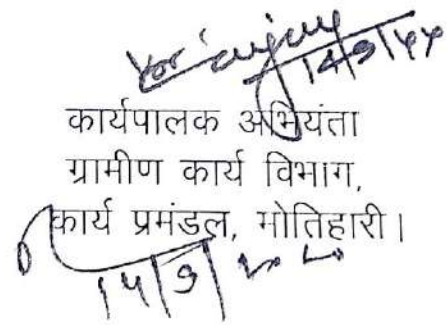 14/9/44
कार्यपालक अभियंता
ग्रामीण कार्य विभाग,
कार्य प्रमंडल, मोतिहारी।
14/9/2020